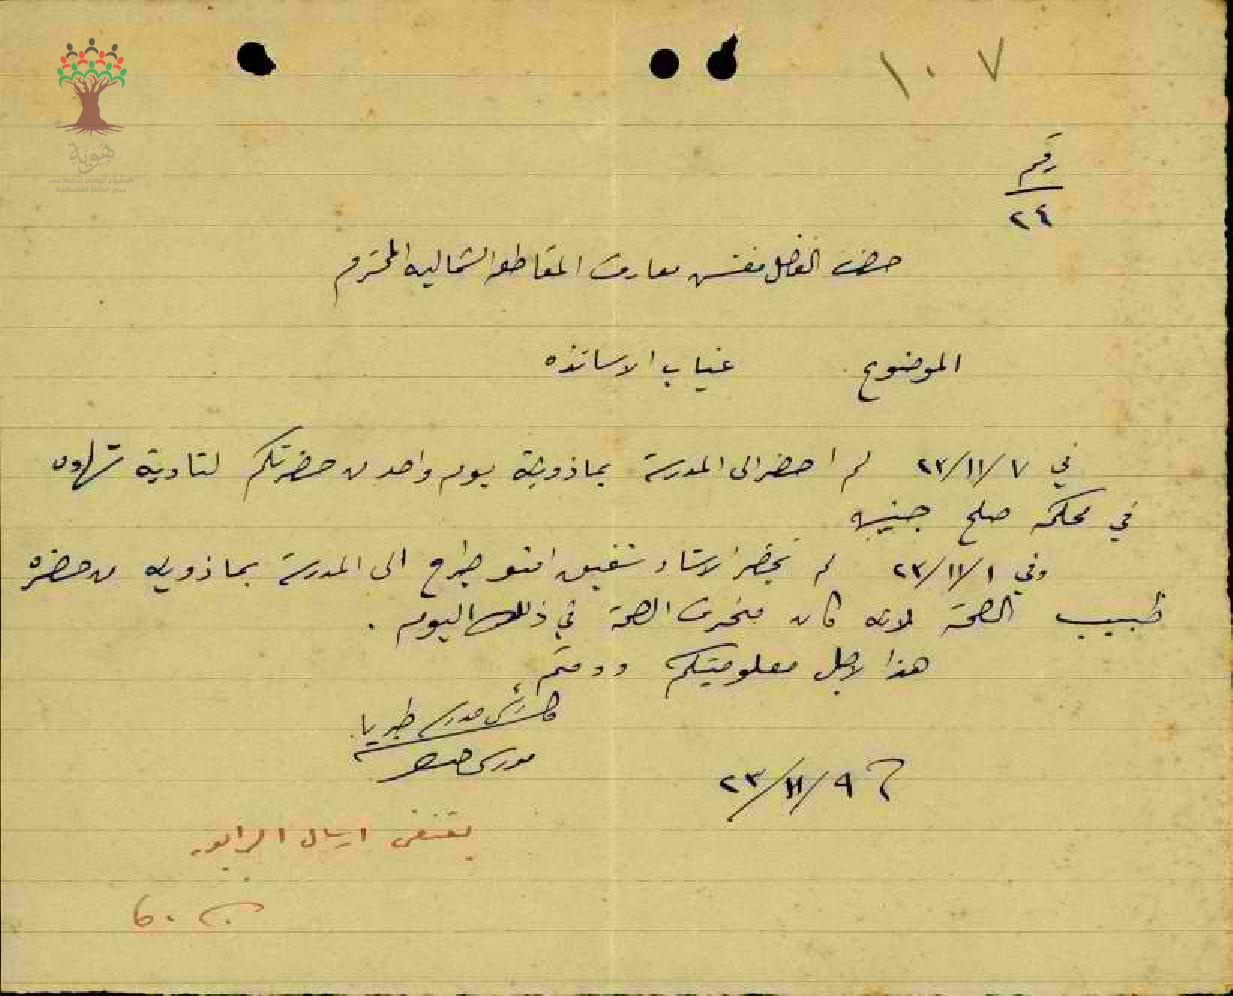 ١٠٧
هوية
رقم
٢٤
حضرة الفاضل مفتش معارف المقاطعه الشماليه المحترم
الموضوع غياب الاساتذه
في ٢٣/١١/٧ لم احضر الى المدرسة بماذونية يوم واحد من حضرتكم لتادية شهادة
في محكمة صلح جنين
وفي ٢٣/١١/١ لم يحضر شفيق افندي الى المدرسة بماذونيه من حضرة
طبيب الصحة لانه كان منحرف الصحة في ذلك اليوم .
هذا لاجل معلوميتكم ودمتم
مدرسة طبريا
٢٣/١١/٩
يقتضى ارسال